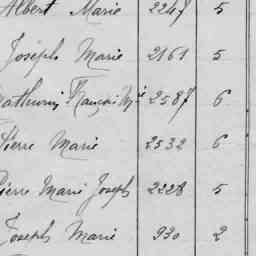 Albert Marie 2247 5
Joseph Marie 2161 5
athurin François Mie 2587 6
ierre Marie 2532 6
Pierre Marie Joseph 2228 5
Joseph Marie 930 2